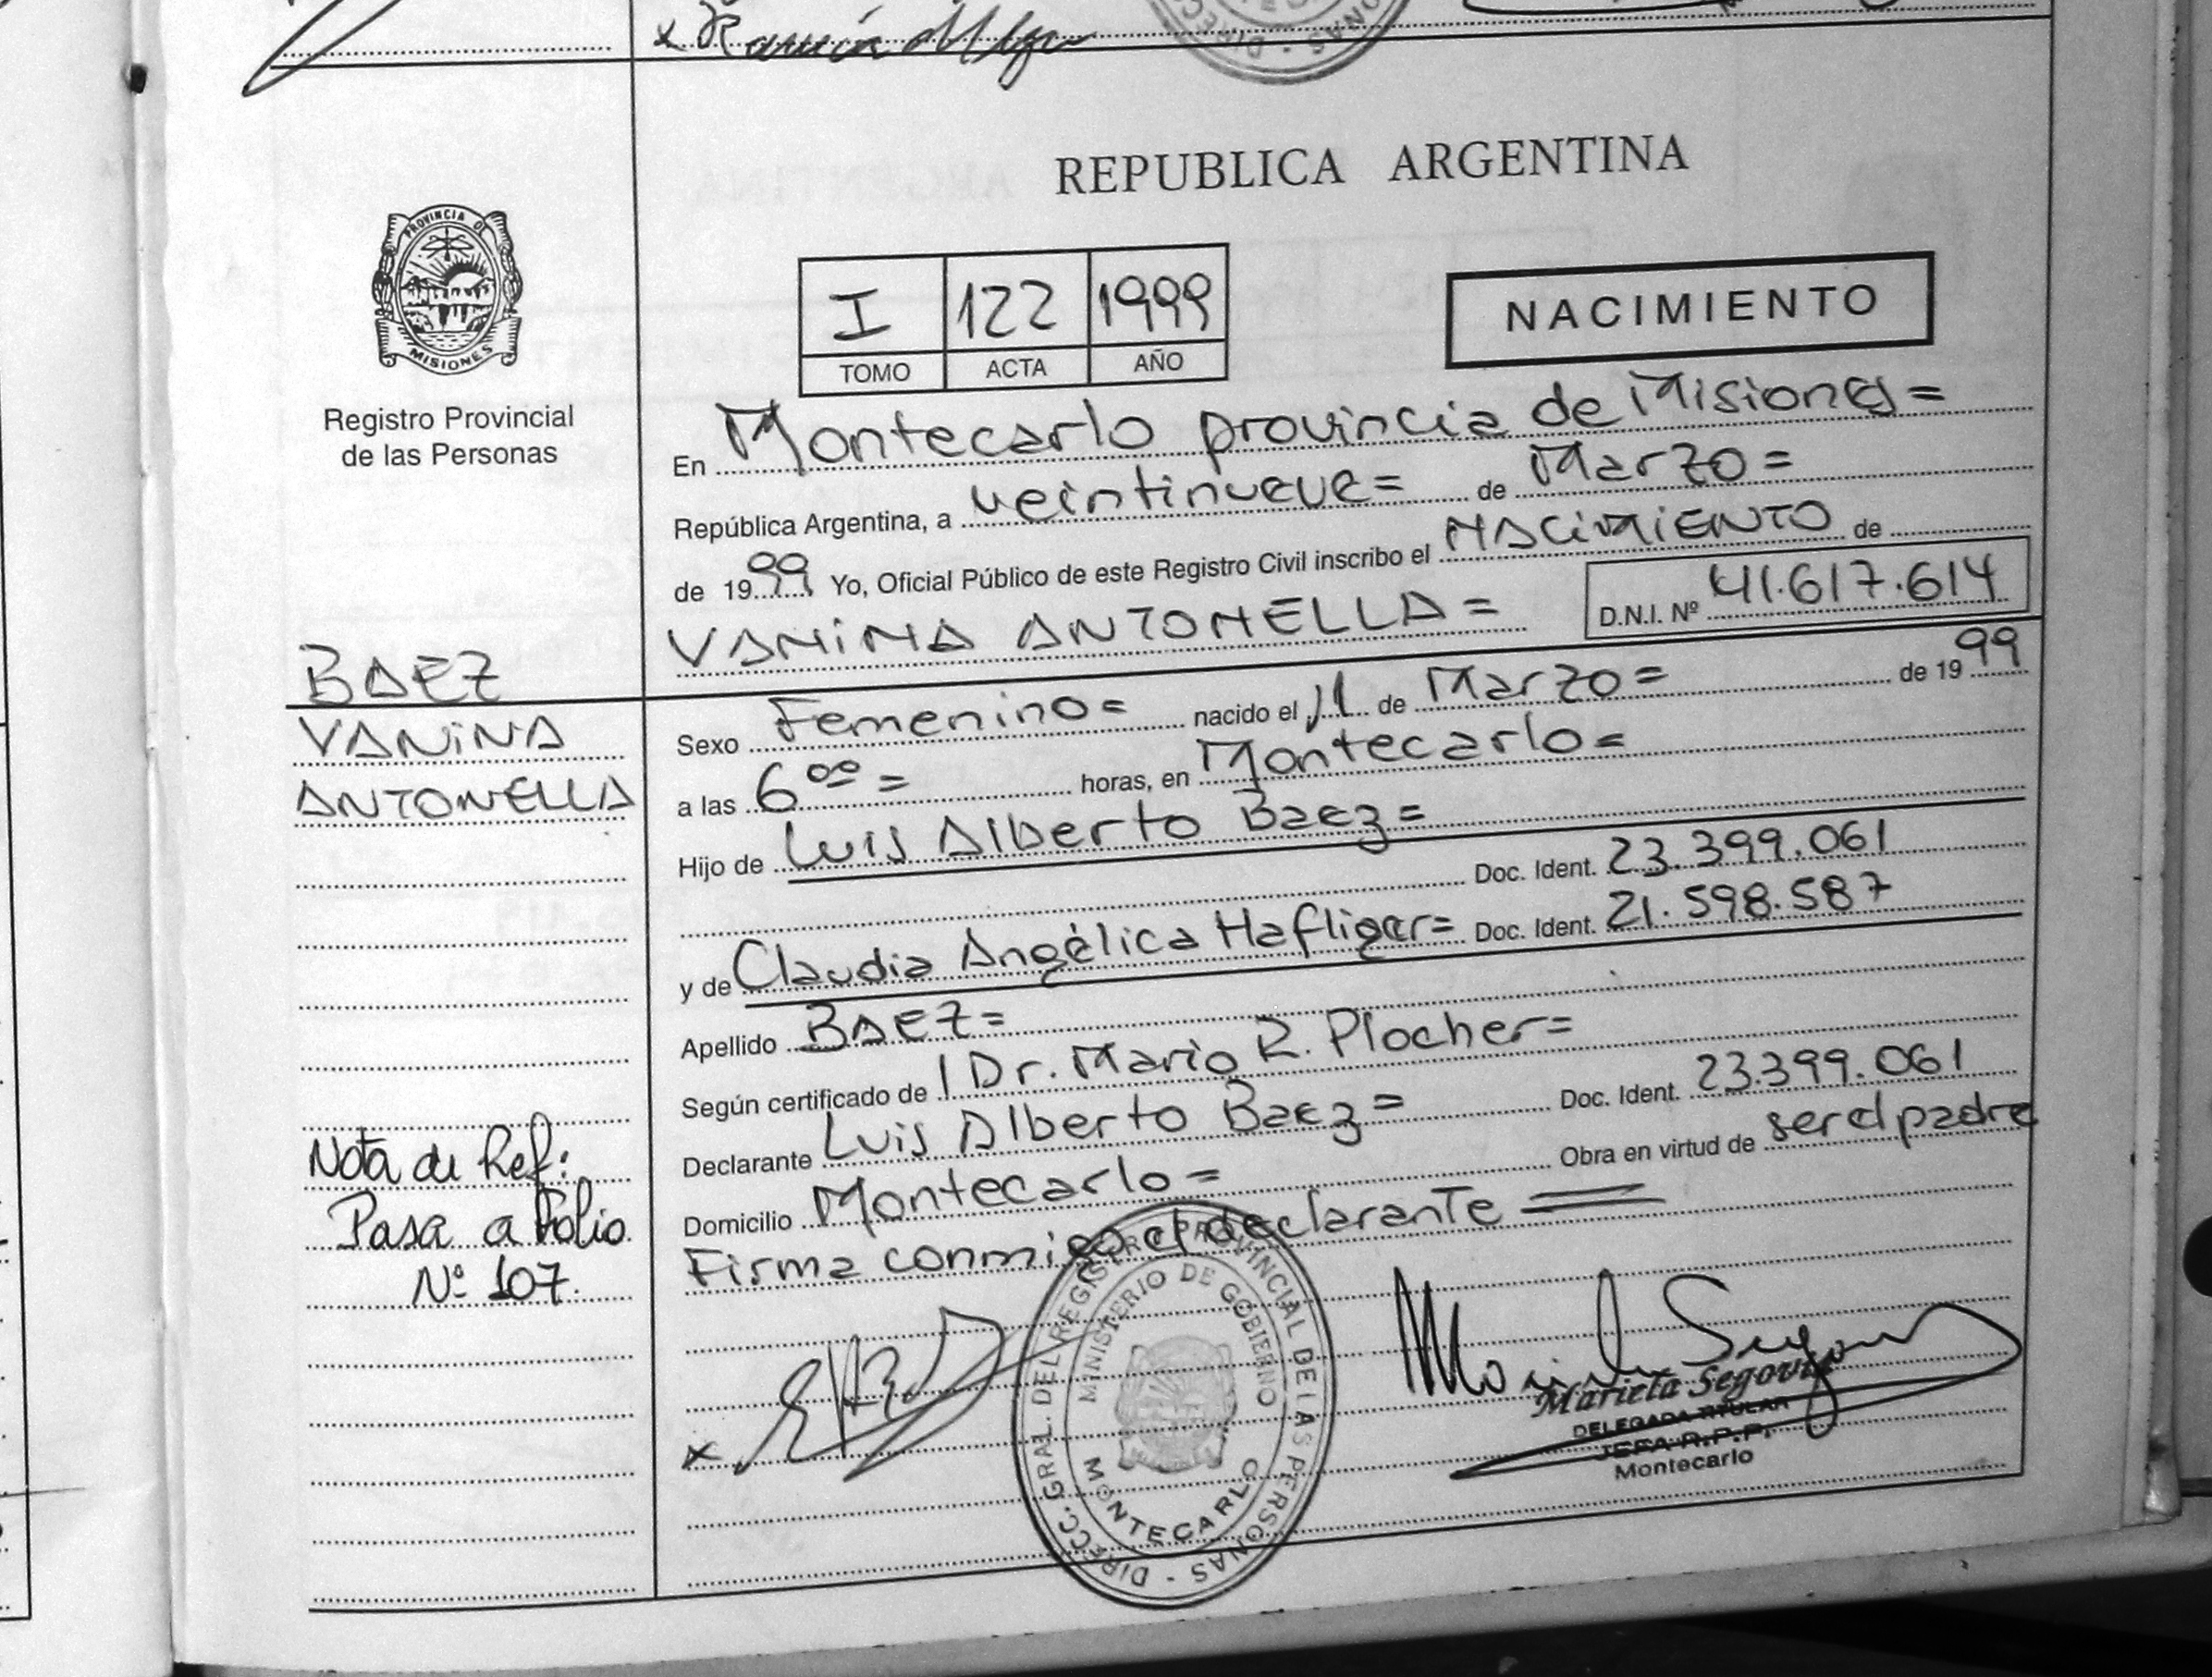 x Ramón
REPUBLICA ARGENTINA
PROVINCIA DE
MISIONES
Registro Provincial
de las Personas
I 122 1999
TOMO ACTA AÑO
NACIMIENTO
En Montecarlo provincia de Misiones=
República Argentina, a veintinueve= de Marzo=
de 1999 Yo, Oficial Público de este Registro Civil inscribo el NACIMIENTO de
VANINA ANTONELLA= D.N.I. Nº 41.617.614
BAEZ
VANINA
ANTONELLA
Sexo Femenino= nacido el 11 de Marzo= de 1999
a las 6 00 = horas, en Montecarlo=
Hijo de Luis Alberto Baez=
Doc. Ident. 23.399.061
y de Claudia Angélica Hafliger= Doc. Ident. 21.598.587
Apellido BAEZ=
Según certificado de l Dr. Mario R. Plocher=
Declarante Luis Alberto Baez= Doc. Ident. 23.399.061
Domicilio Montecarlo= Obra en virtud de ser el padre
Firma conmigo el declarante =
Nota de Ref:
Pasa a folio
Nº 107.
DIRECC. GRAL. DEL REGISTRO PROVINCIAL DE LAS PERSONAS -
MINISTERIO DE GOBIERNO
MONTECARLO
x
Mariela Segovia
DELEGADA TITULAR
JEFA R.P.P.
Montecarlo